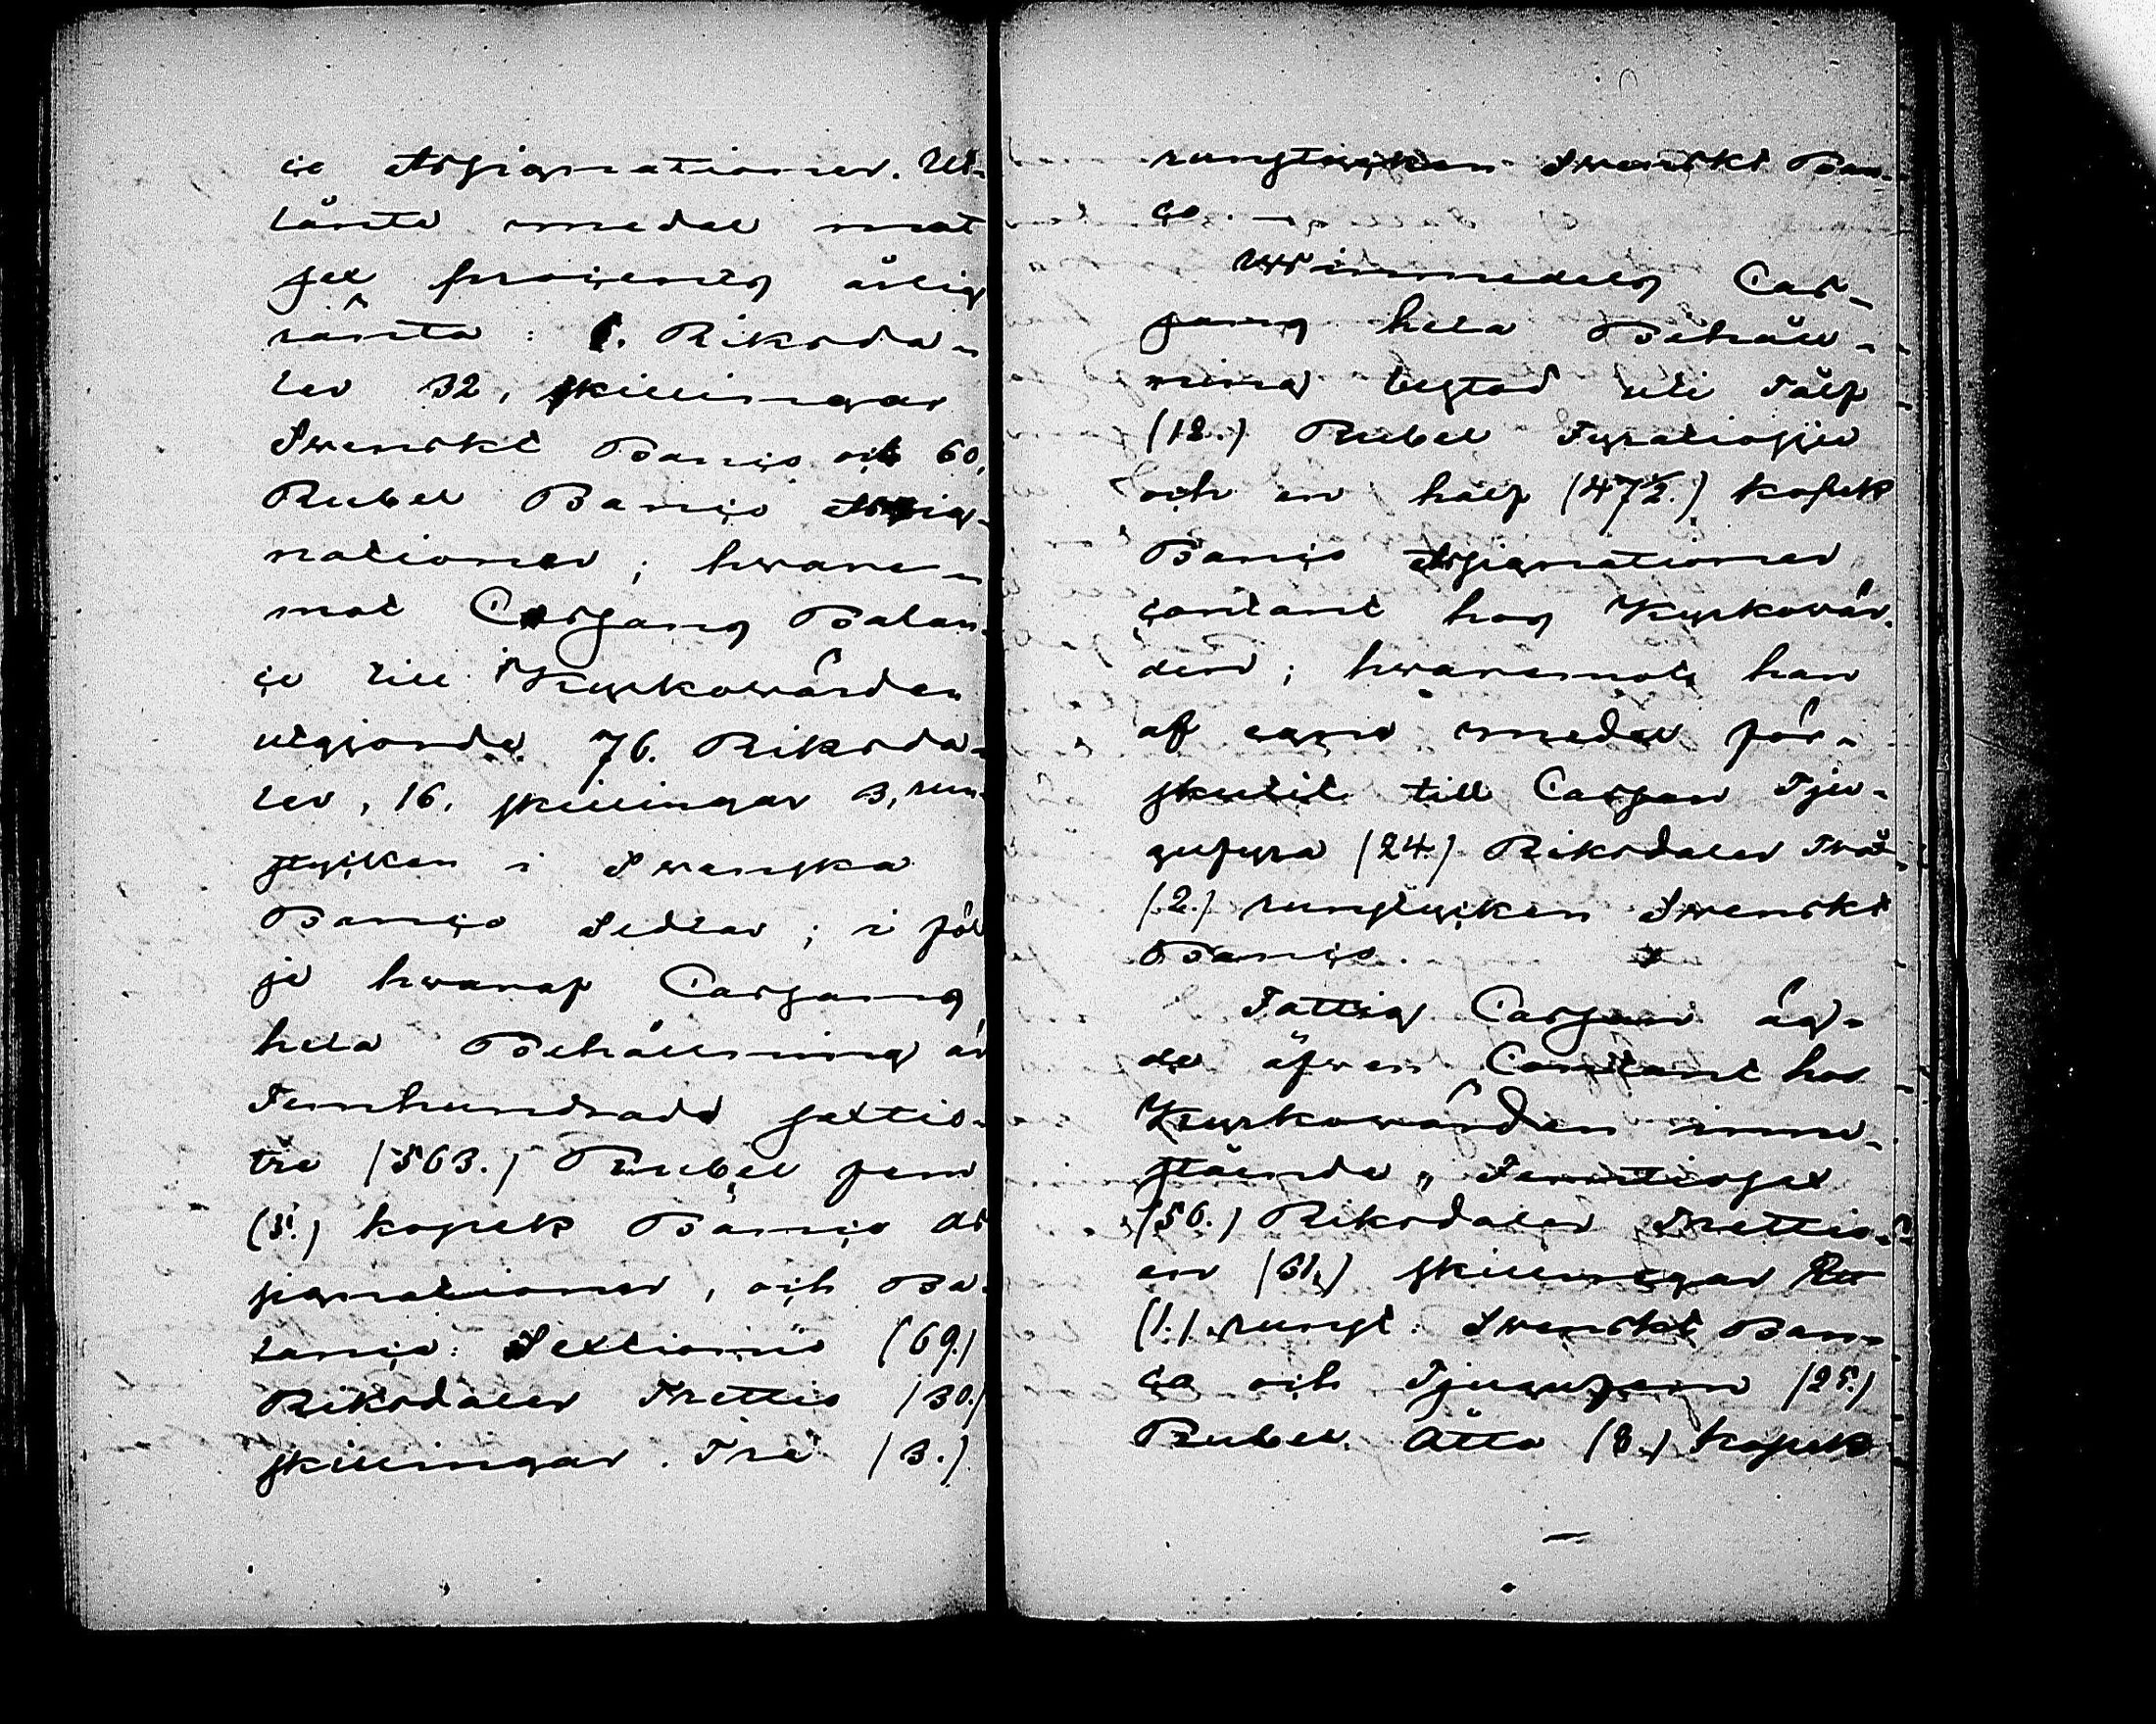 ce Assignationer. Ut-
lånte medel mot
sex procents årlig
ränta: 1. Riksda-
ler 32, skillingar
Swenskt Banco och 60,
Rubel Banco Assig-
nationer; hware-
mot Cassans Balan-
ce till Kyrkowärden
utgjorde 76. Riksda-
ler, 16. skillingar 3, run-
stycken i Swenska
Banco Sedlar; i föl
je hwaraf Cassans
hela Behållning är
Femhundrade sextio-
tre (563.) Rubel fem
(5.) kopek Banco As
signationer, och Ba-
lance: Sextionio (69.)
Riksdaler Trettio (30.)
skillingar. Tre (3.)
runstycken Swenskt Ban-
co. —
Winmedels Cas-
sans hela Behåll-
ning bestod uti Tolf
(12.) Rubel Fyratiosju
och en half (47½.) kopek
Banco Assignationer
contant hos Kyrkowär-
den; hwaremot han
af egne medel för-
skutit till Cassan Tju-
gufyra (24.) Riksdaler Två
(2.) runstycken Swenskt
Banco.
Fattig Cassan äg-
de äfwen Contant hos
Kyrkowärden inne-
stående „ Femtiosex
(56.) Riksdaler Trettio-
en (31,) skillingar
(1.) runst: Swenskt Ban-
co och Tjugufem (25.)
Rubel Åtta (8.) kopek